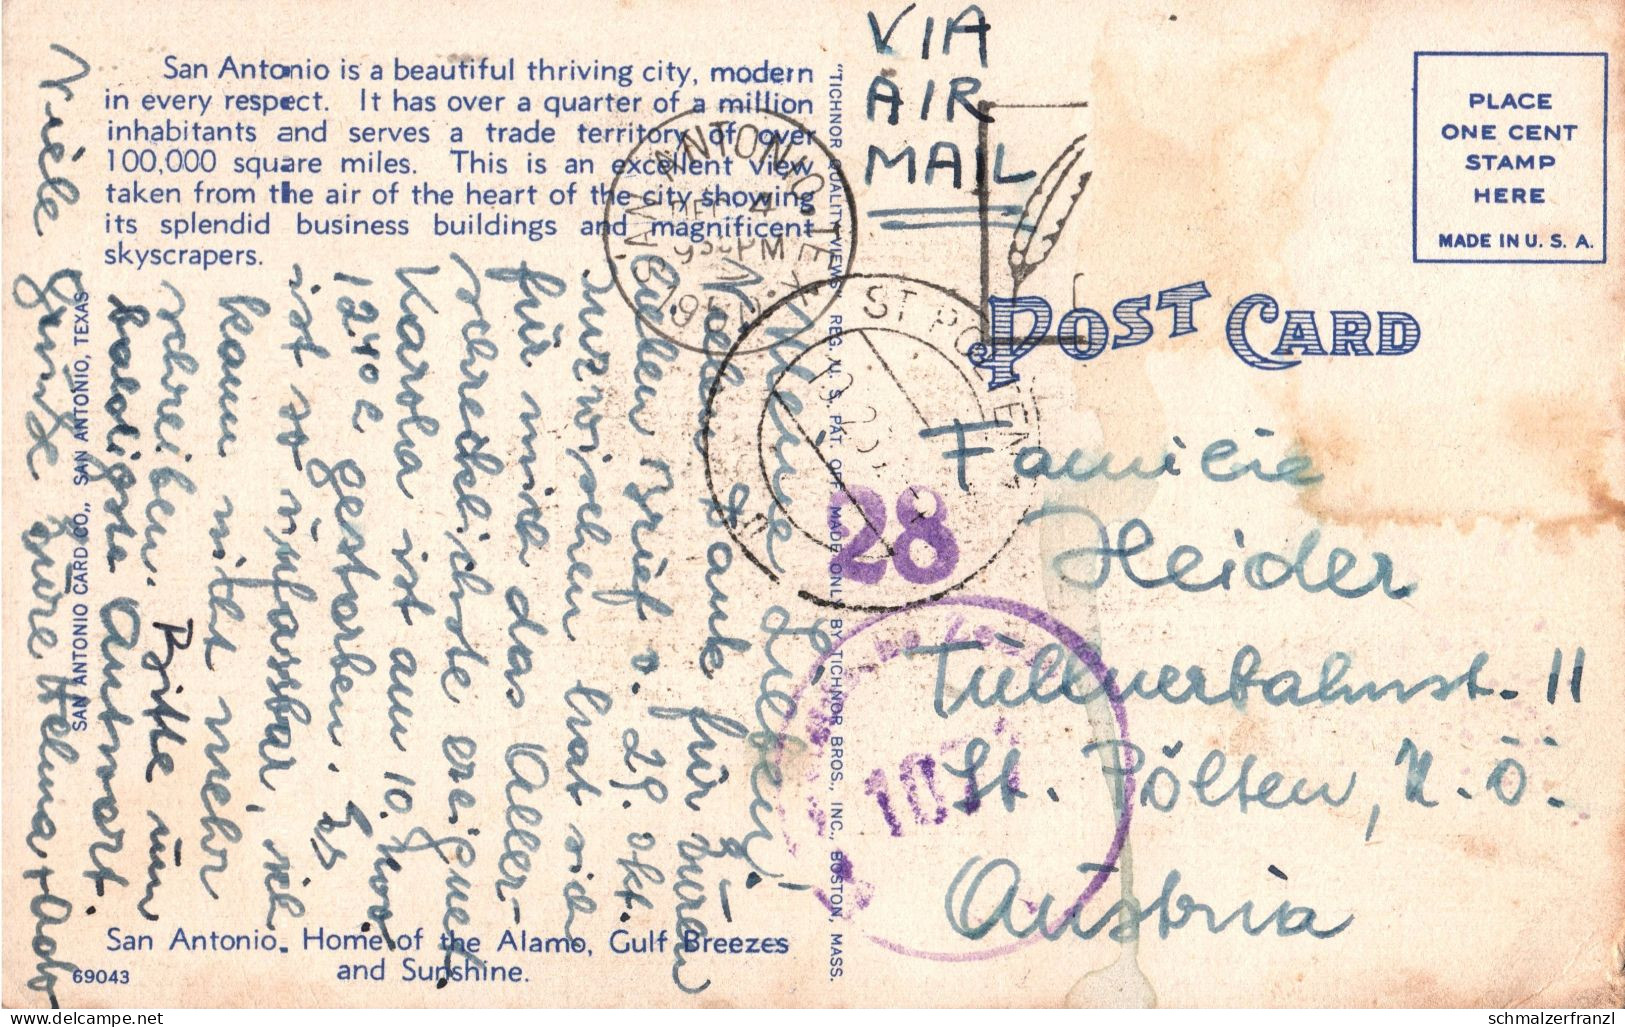 San Antonio is a beautiful thriving city, modern
in every respect. It has over a quarter of a million
inhabitants and serves a trade territory of over
100,000 square miles. This is an excellent view
taken from the air of the heart of the city showing
its splendid business buildings and magnificent
skyscrapers.
Meine Lieben!
Vielen Dank für Euren
lieben Brief v. 29. Okt.
Inzwischen hat sich
für mich das Aller-
schrecklichste ereignet
Karola ist am 10. Nov.
12.40 gestorben. Es
ist so unfassbar, ich
kann nicht mehr
schreiben. Bitte um
baldigste Antwort.
Viele Grüße Eure Helma
San Antonio. Home of the Alamo, Gulf Breezes
and Sunshine.
69043
SAN ANTONIO CARD CO., SAN ANTONIO, TEXAS
"TICHNOR QUALITY VIEWS," REG. U. S. PAT. OFF. MADE ONLY BY TICHNOR BROS., INC., BOSTON, MASS.
VIA
AIR
MAIL
PLACE
ONE CENT
STAMP
HERE
MADE IN U. S. A.
SAN ANTONIO TEX.
4
PM
1950
ST. PÖLTEN
POST CARD
28
Familie
Heider
St. Pölten, N.Ö.
Austria
schmalzerfranzl